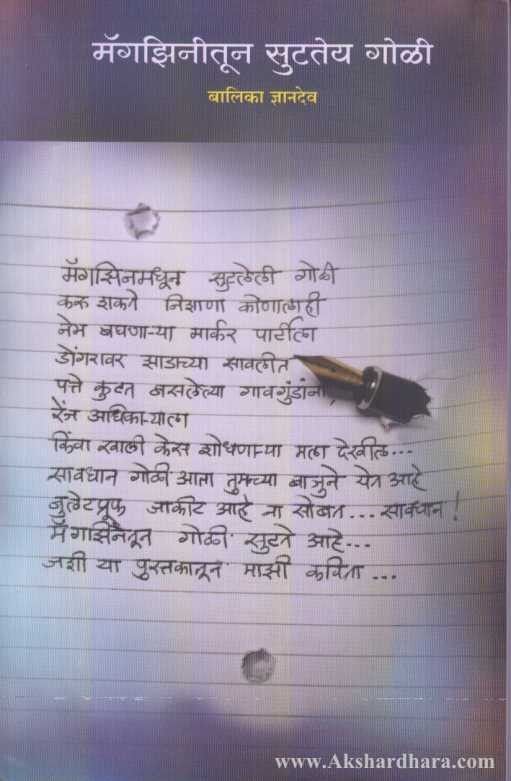 मॅगझिनीतून सुटतेय गोळी
बालिका ज्ञानदेव
मॅगझिनमधून सुटलेली गोळी
करू शकते निशाणा कोणालाही
नेम बघणाऱ्या मार्कर पार्टीला
डोंगरावर झाडाच्या सावलीत
पत्ते कुटत बसलेल्या गावगुंडांना,
रेंज अधिकाऱ्याला
किंवा खाली केस शोधणाऱ्या मला देखील...
सावधान गोळी आता तुमच्या बाजुने येत आहे
बुलेटप्रूफ जाकीट आहे ना सोबत... सावधान!
मॅगझिनेतून गोळी सुटते आहे...
जशी या पुस्तकातून माझी कविता...
www.Akshardhara.com